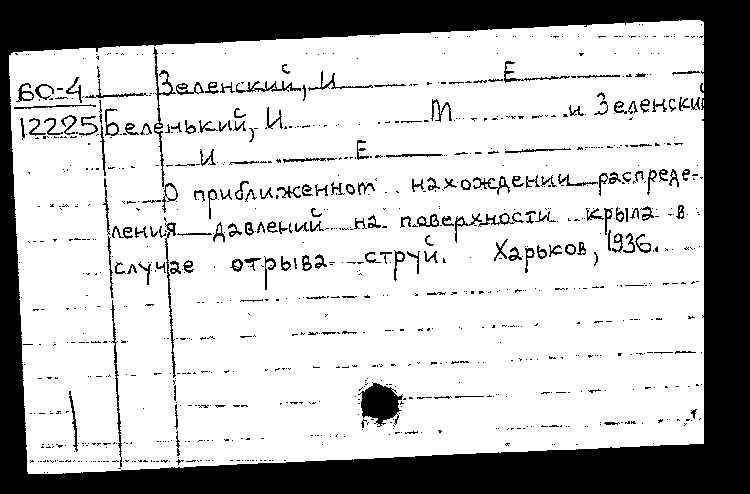 ВО-4 Зеленский, И Е
12225 Беленький, И М и Зеленский
И Е
О приближенном нахождении распреде-
ления давлений на поверхности крыла в
случае отрыва струй. Харьков, 1936.